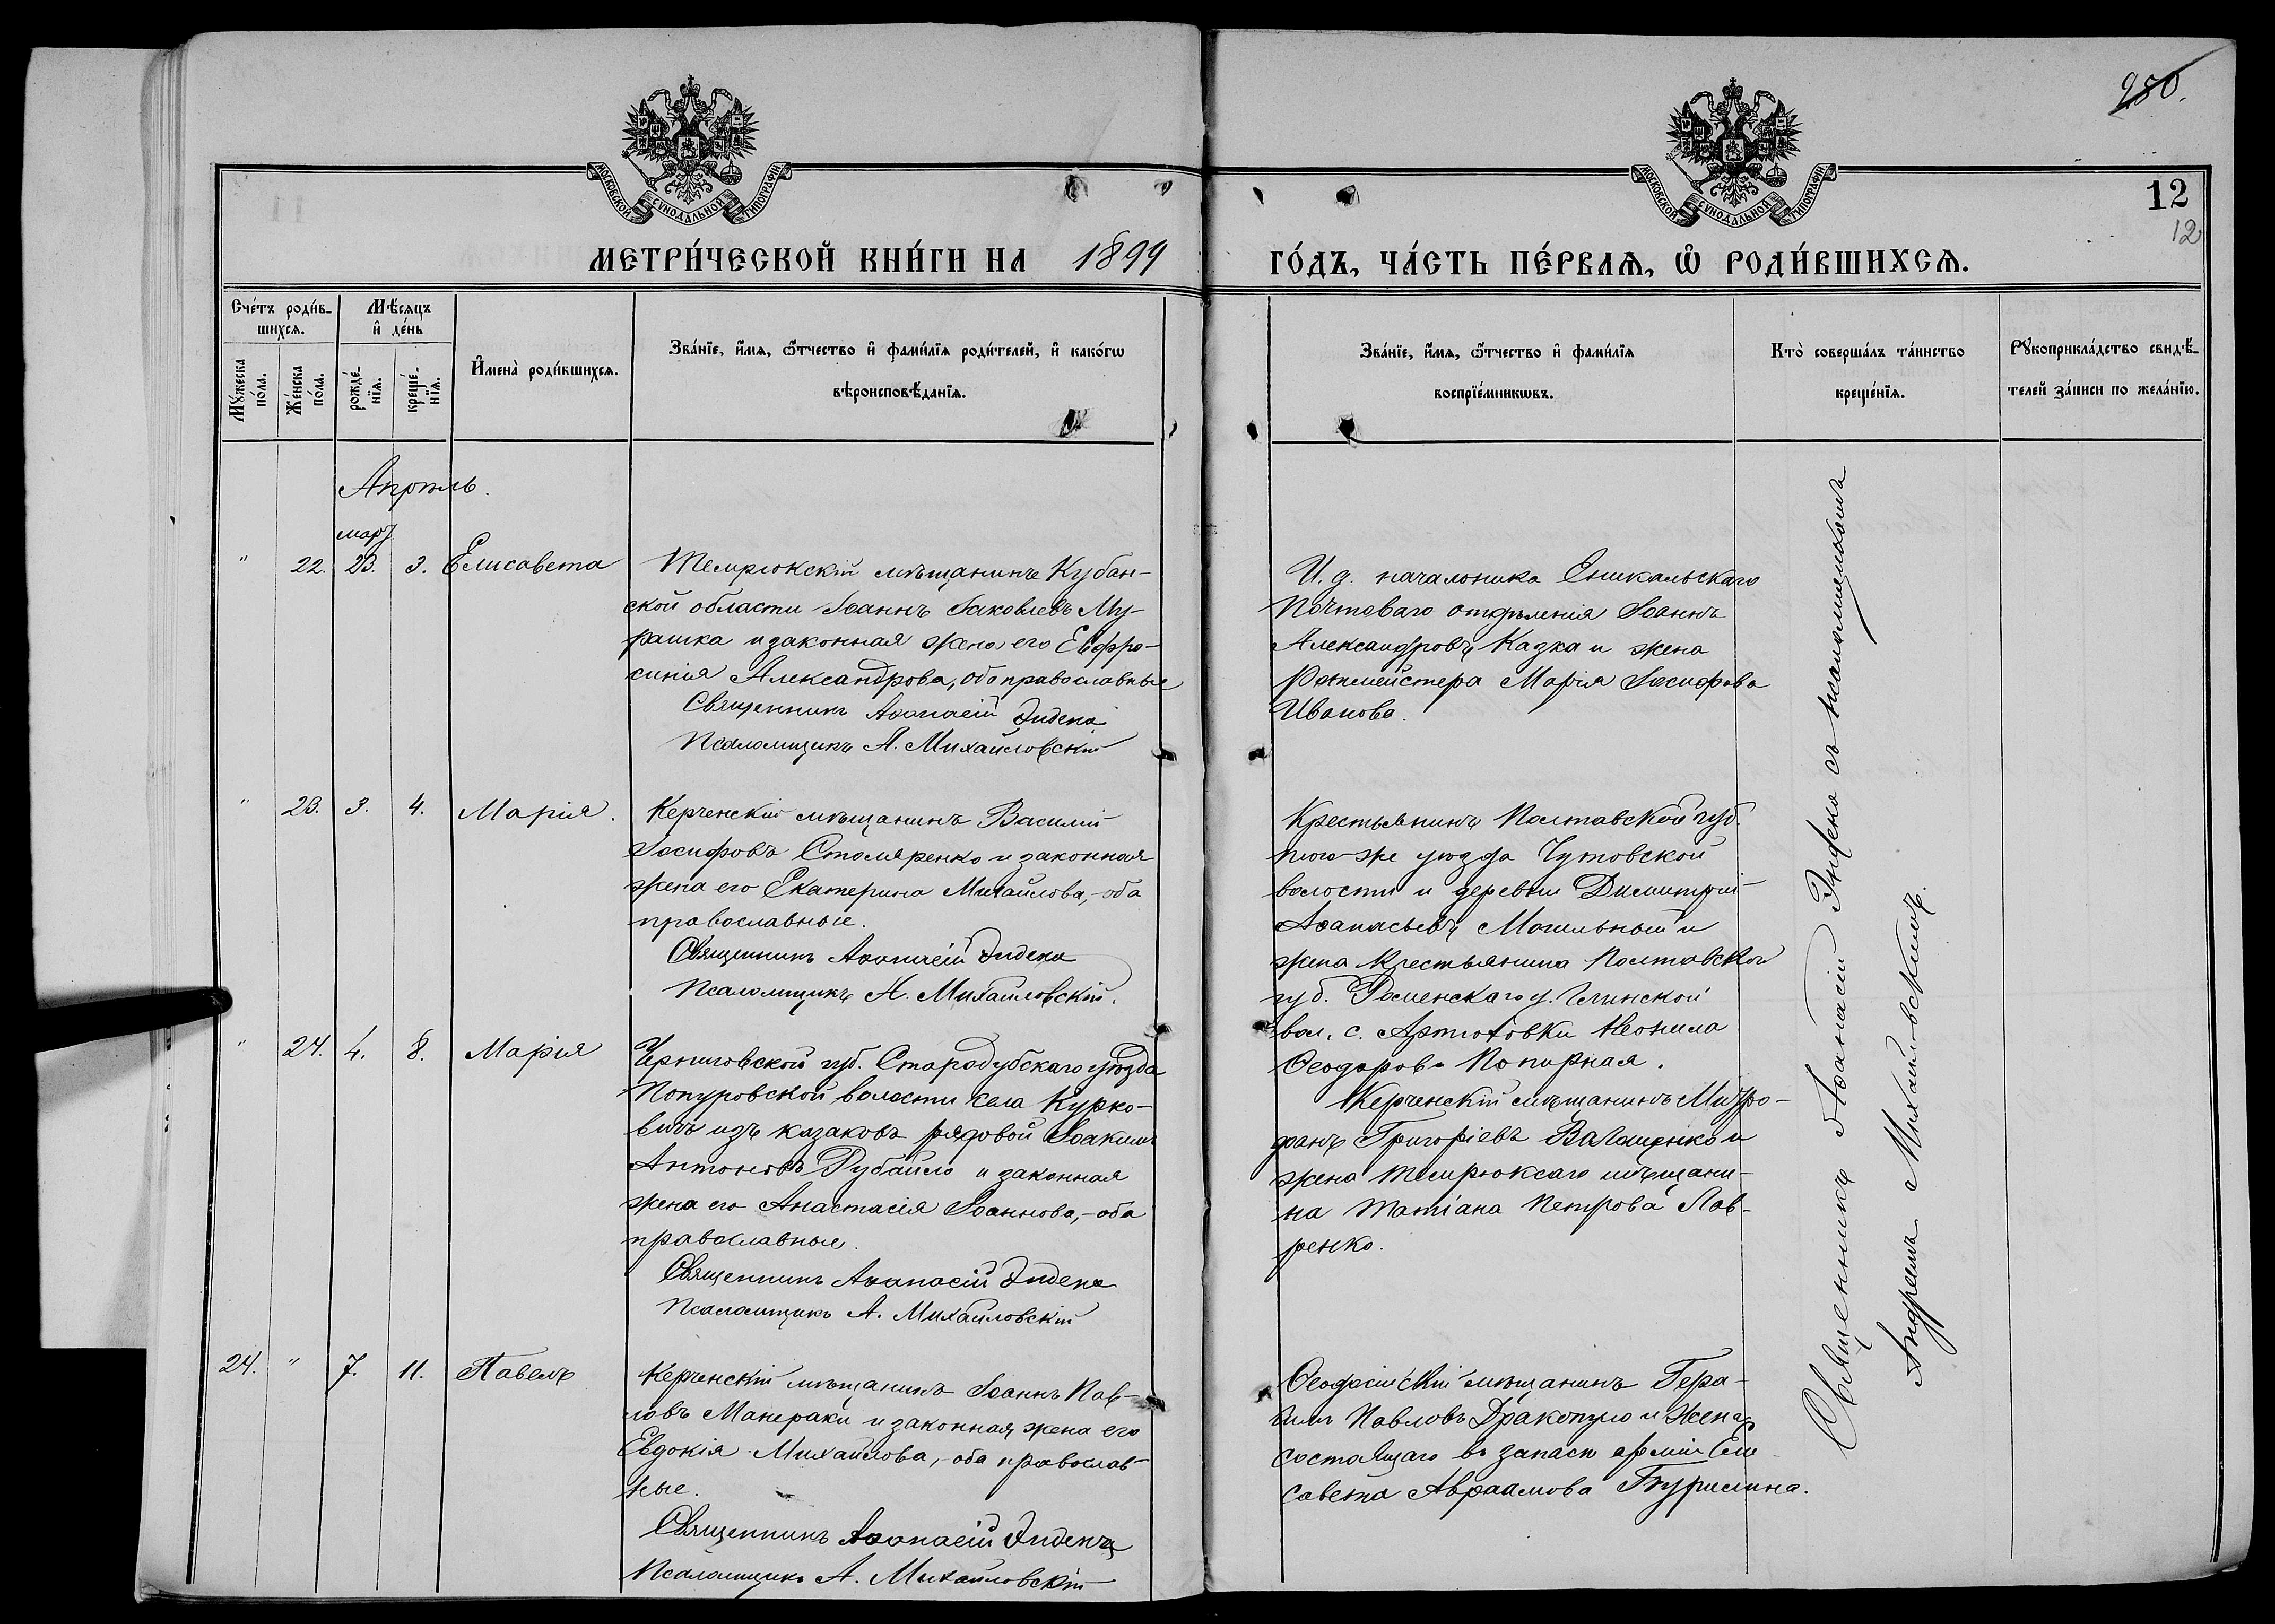 280.
МОСКОВСКОЙ СѴНОДАЛЬНОЙ ТИПОГРАФІИ
МОСКОВСКОЙ СѴНОДАЛЬНОЙ ТИПОГРАФІИ
12
12
МЕТРИ́ЧЕСКОЙ КНИ́ГИ НА 1899 ГО́ДЪ, ЧА́СТЬ ПЕ́РВАѦ, Ѡ҆ РОДИ́ВШИХСѦ.
Сче́тъ роди́в-
шихсѧ.
Мꙋ́жеска по́ла.
Же́нска по́ла.
Мѣ́сѧцъ
и҆ де́нь
рожде́-
нїѧ.
креще́-
нїѧ.
И҆мена̀ роди́вшихсѧ.
Зва́нїе, и҆́мѧ, ѻ҆́тчество и҆ фами́лїѧ роди́телей, и҆ како́гѡ
вѣроисповѣ́данїѧ.
Зва́нїе, и҆́мѧ, ѻ҆́тчество и҆ фами́лїѧ
воспрїе́мникѡвъ.
Кто̀ соверша́лъ та́инство
креще́нїѧ.
Рꙋкоприкла́дство свидѣ́-
телей за́писи по жела́нїю.
Апрѣль.
мар.
" 22. 23. 3. Елисавета
Темрюкскій мѣщанинъ Кубан-
ской области Іоаннъ Іаковлевъ Му-
рашка и законная жена его Евфро-
синія Александрова, оба православные
Священникъ Аѳанасій Индека
Псаломщикъ А. Михайловскій
И. д. начальника Еникальскаго
Почтоваго отдѣленія Іоаннъ
Александровъ Казка и жена
Мария Іосифова
Иванова.
" 23. 3. 4. Марія.
Керченскій мѣщанинъ Василій
Іосифовъ Столяренко и законная
жена его Екатерина Михайлова,-оба
православные.
Священникъ Аѳанасій Индека
Псаломщикъ А. Михайловскій.
Крестьянинъ Полтавской губ.
того-же уѣзда Чутовской
волости и деревни Димитрій
Аѳанасьевъ Могильный и
жена крестьянина Полтавской
губ. Роменскаго у. Глинской
вол. с. Артюховки Неонила
Ѳеодорова Попирная.
" 24. 4. 8. Марія
Черниговской губ. Стародубскаго уѣзда
Понуровской волости села Курко-
вичъ изъ казаковъ рядовой Іоакимъ
Антоновъ Рубайло и законная
жена его Анастасія Іоаннова,-оба
православные.
Священникъ Аѳанасій Индека
Псаломщикъ А. Михайловскій
Керченскій мѣщанинъ Митро-
фанъ Григоріевъ Ващенко и
жена Темрюксаго мѣщани-
на Татіана Петрова Лав-
ренко.
24. " 7. 11. Павелъ
Керченскій мѣщанинъ Іоаннъ Пав-
ловъ Манераки и законная жена его
Евдокія Михайлова,-оба православ-
ные.
Священникъ Аѳанасій Индека
Псаломщикъ А. Михайловскій
Ѳеодосійскій мѣщанинъ Гера-
симъ Павловъ Дракопуло и жена
состоящаго въ запасѣ арміи Ели-
савета Авраамова Турилина.
Священникъ Аѳанасій Индека съ псаломщикомъ
Андреемъ Михайловскимъ.